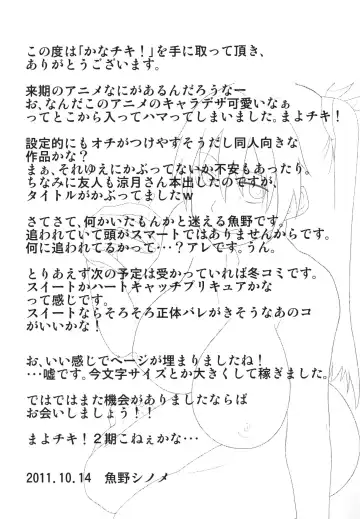 この度は「かなチキ！」を手に取って頂き、
ありがとうございます。
来期のアニメなにがあるんだろうなー
お、なんだこのアニメのキャラデザ可愛いなぁ
ってとこから入ってハマってしまいました。まよチキ！
設定的にもオチがつけやすそうだし同人向きな
作品かな？
まぁ、それゆえにかぶってないか不安もあったり。
ちなみに友人も涼月さん本出したのですが、
タイトルがかぶってましたw
さてさて、何かいたもんかと迷える魚野です。
追われていて頭がスマートではないからです。
何に追われてるかって・・・？アレです。うん。
とりあえず次の予定は受かっていれば冬コミです。
スイートかハートキャッチプリキュアかな
って感じです。
スイートならそろそろ正体バレがきそうなあのコ
がいいかな！
お、いい感じでページが埋まりましたね！
・・・嘘です。今文字サイズとか大きくして稼ぎました。
ではではまた機会がありましたならば
お会いしましょう！！
まよチキ！２期こねぇかな・・・
2011.10.14　魚野シノメ